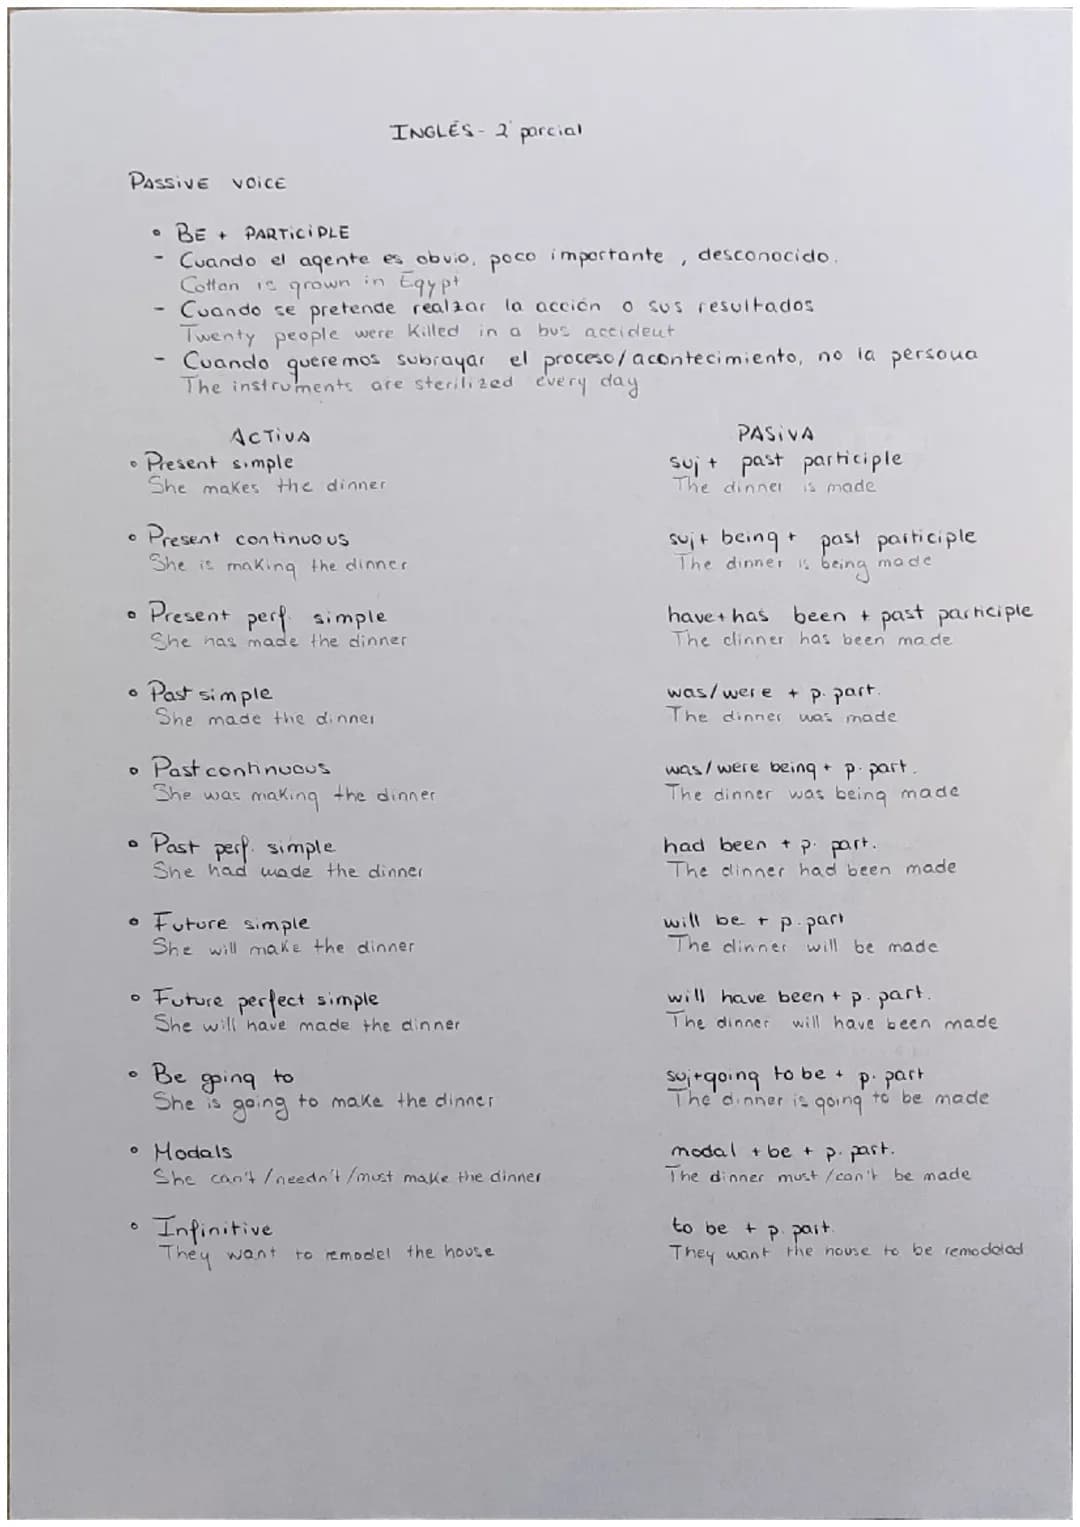 INGLÉS - 2º parcial
PASSIVE VOICE
• BE + PARTICIPLE
- Cuando el agente es obvio, poco importante, desconocido.
Cotton is grown in Egypt
- Cuando se pretende realzar la acción o sus resultados
Twenty people were killed in a bus accident
- Cuando queremos subrayar el proceso/acontecimiento, no la persona
The instruments are sterilized every day
ACTIVA PASIVA
• Present simple suj + past participle
She makes the dinner The dinner is made
• Present continuous suj + being + past participle
She is making the dinner The dinner is being made
• Present perf. simple have + has been + past participle
She has made the dinner The dinner has been made
• Past simple was/were + p. part.
She made the dinner The dinner was made
• Past continuous was/were being + p. part.
She was making the dinner The dinner was being made
• Past perf. simple had been + p. part.
She had made the dinner The dinner had been made
• Future simple will be + p. part
She will make the dinner The dinner will be made
• Future perfect simple will have been + p. part.
She will have made the dinner The dinner will have been made
• Be going to suj + going to be + p. part
She is going to make the dinner The dinner is going to be made
• Modals modal + be + p. part.
She can't/needn't/must make the dinner The dinner must/can't be made
• Infinitive to be + p. part.
They want to remodel the house They want the house to be remodelad